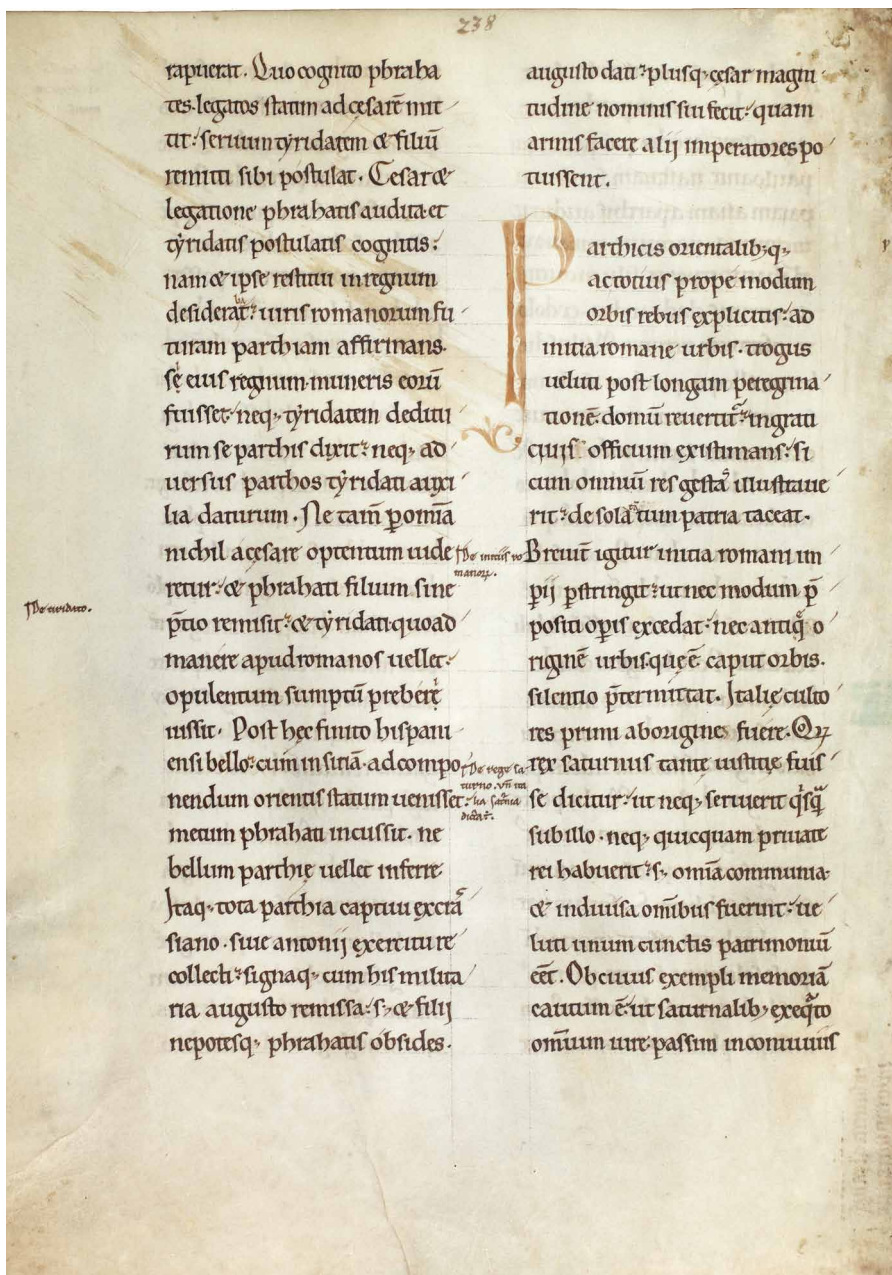 238
rapuerat. Quo cognito phraha
tes. legatos statim ad cesarē mit
tit. seruum tyridatem & filiū
remitti sibi postulat. Cesar &
legatione phrahatis audita et
tyridatis postulatis cognitis.
nam & ipse restitui in regnum
desiderat. iuris romanorum fu
turam parthiam affirmans.
sę eius regnum muneris eorū
fuisset. neq; tyridatem dediti
rum se parthis dixit. neq; ad
uersus parthos tyridati auxi
lia daturum. Ne tam̄ p omīa
nichil a cesare optentum uide
retur. & phrahati filium sine
p̄tio remisit. & tyridati quoad
manere apud romanos uellet.
opulentum sumptū preberē
iussit. Post hęc finito hispani
ensi bello. cum in siriā. ad compo
nendum orientis statum uenisset.
metum phrahati incussit. ne
bellum parthię uellet inferre.
Itaq; tota parthia captiui ex cra
siano. siue antonij exercitu re
collecti. signaq; cum his milita
ria augusto remissa. s; & filij
nepotesq; phrahatis obsides.
augusto dati. plusq; cęsar magni
tudine nominis sui fecit. quam
armis facere alij imperatores po
tuissent.
Parthicis orientalib; q;
ac totius prope modum
orbis rebus explicitis. ad
initia romane urbis. trogus
ueluti post longam peregrina
tionē. domū reuertit᷑. ingrati
ciuis officium existimans. si
cum omniū res gestas illustraue
rit. de sola tun patria taceat.
Breuit᷑ igitur initia romani im
perij pstringit. ut nec modum p̄
positi opis excedat. nec antiq̇ o
riginē urbis. que ē caput orbis.
silentio p̄termittat. Italie culto
res primi aborigines fuere. Qꝝ
rex saturnus tante iustitię fuis
se dicitur. ut neq; seruierit q̇sq̃
sub illo. neq; quicquam priuate
rei habuerit. s; omīa communia
& indiuisa omībus fuerint. ue
luti unum cunctis patrimoniū
eēt. Ob cuius exempli memoriā
cautum ē. ut saturnalib; exeq̃to
omnium iure. passim in conuiuiis
De initiis ro
manoꝝ.
De rege sa
turno. vn̄ ita
lia sat᷑nia
dicta᷑.